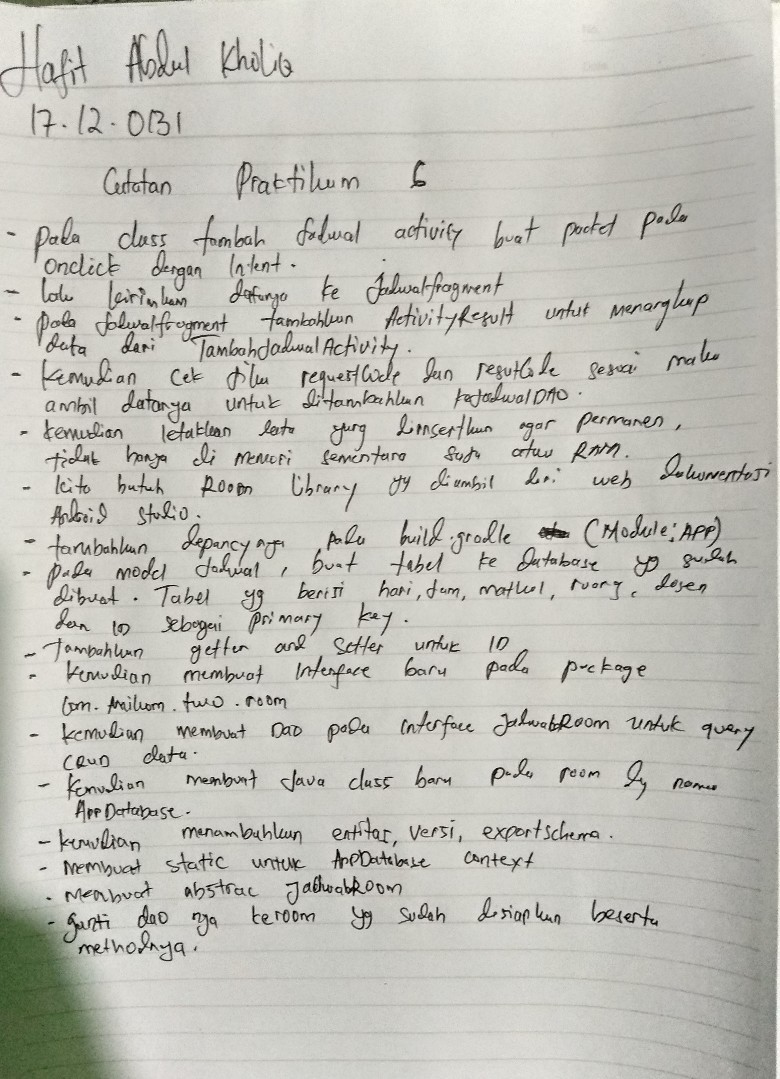 Hafit Abdul Kholiq
17.12.0131
Catatan Praktikum 6
- pada class tambah jadwal activity buat packet pada
onclick dengan Intent.
- lalu kirimkan datanya ke Jadwalfragment
- pada jadwalfragment tambahkan ActivityResult untuk menangkap
data dari TambahJadwalActivity.
- Kemudian cek jika requestCode dan resultCode sesuai maka
ambil datanya untuk ditambahkan ke JadwalDAO.
- kemudian letakkan data yang diinsertkan agar permanen,
tidak hanya di memori sementara saja atau RAM.
- kita butuh Room library yg diambil dari web dokumentasi
Android Studio.
- tambahkan depancynya pada build.gradle (Module:APP)
- pada model Jadwal, buat tabel ke database yg sudah
dibuat. Tabel yg berisi hari, jam, matkul, ruang, dosen
dan ID sebagai primary key.
- Tambahkan getter and Setter untuk ID
- Kemudian membuat Interface baru pada package
com. two . room
- kemudian membuat DAO pada interface JadwalRoom untuk query
CRUD data.
- Kemudian membuat Java class baru pada room dg nama
AppDatabase.
- kemudian menambahkan entitas, versi, exportschema.
- Membuat static untuk AppDatabase context
- Membuat abstrac JadwalRoom
- ganti dao nya keroom yg sudah disiapkan beserta
methodnya.